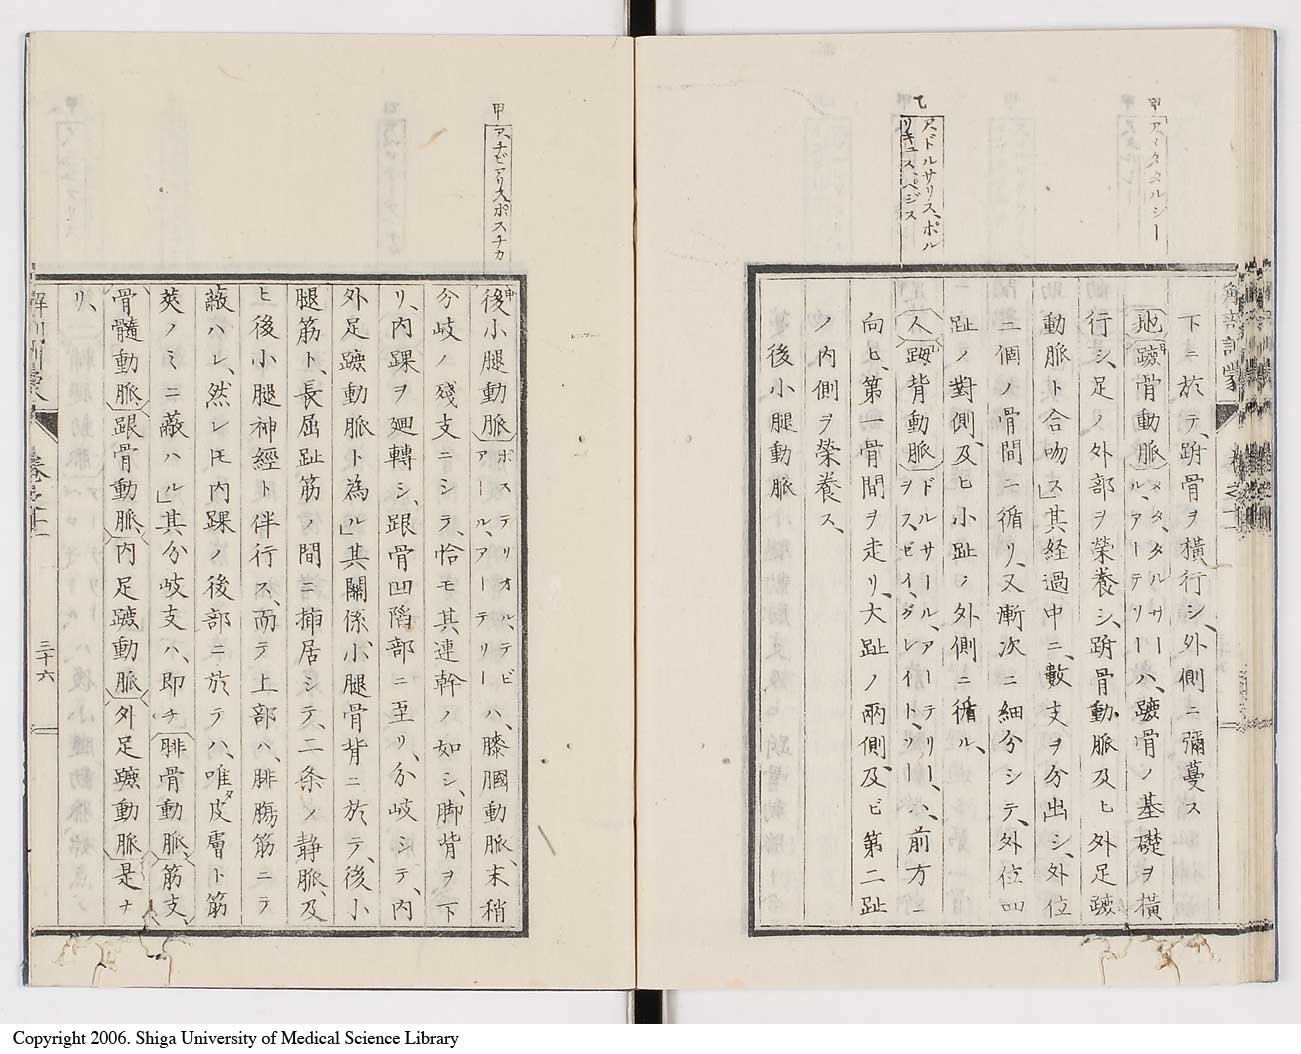 甲
アヽメタタルシー
乙
アヽドルサリス、ポル
リキュス、ペジス
下ニ於テ、跗骨ヲ横行シ、外側ニ彌蔓ス
地蹠骨動脈メタ、タルサー
ル、アーテリーハ、蹠骨ノ基礎ヲ横
行シ、足ノ外部ヲ榮養シ、跗骨動脈及ヒ外足蹠
動脈ト合吻ス」其経過中ニ、數支ヲ分出シ、外位
二個ノ骨間ニ循リ、又漸次ニ細分シテ、外位四
趾ノ對側、及ヒ小趾ノ外側ニ循ル、
人𧿹背動脈ドルサール、アーテリー、
ヲス、ゼイ、グレイト、ソーハ、前方ニ
向ヒ、第一骨間ヲ走リ、大趾ノ兩側、及ビ第二趾
ノ内側ヲ榮養ス、
後小腿動脈
解剖訓蒙
卷之十一
甲
アヽチビアリスポスチカ
後小腿動脈ポステリオル、テビ
アール、アーテリーハ、膝膕動脈、末稍
分岐ノ殘支ニシテ、恰モ其連幹ノ如シ、脚背ヲ下
リ、内踝ヲ廻轉シ、跟骨凹陷部ニ至リ、分岐シテ、内
外足蹠動脈ト為ル」其關係、小腿骨背ニ於テ、後小
腿筋ト、長屈趾筋ノ間ニ挿居シテ、二条ノ静脈、及
ヒ後小腿神經ト伴行ス、而テ上部ハ、腓膓筋ニテ
蔽ハレ、然レ𪜈内踝ノ後部ニ於テハ、唯タ皮膚ト筋
莢ノミニ蔽ハル」其分岐支ハ、即チ腓骨動脈、筋支、
骨髓動脈、跟骨動脈、内足蹠動脈、外足蹠動脈、是ナ
リ、
解剖訓蒙
卷之十一
三十六
Copyright 2006. Shiga University of Medical Science Library